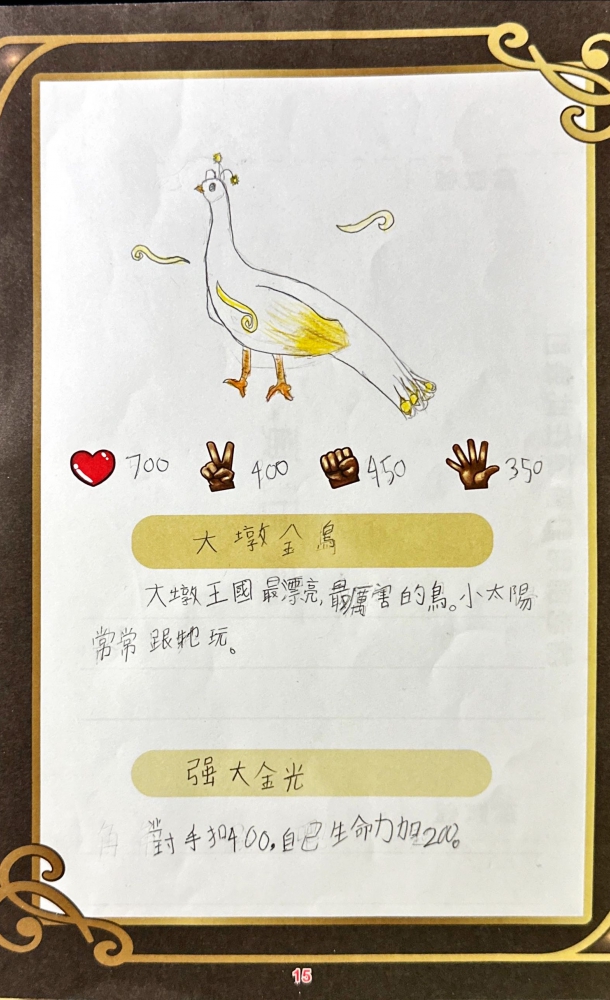 700 400 450 350
大墩金鳥
大墩王國最漂亮,最厲害的鳥。小太陽
常常跟牠玩。
强大金光
對手扣400,自己生命力加200。
15